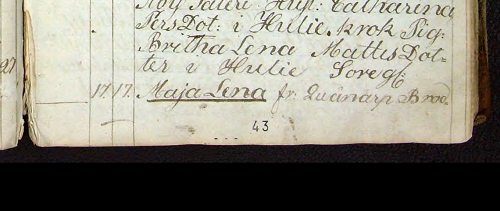 Hust: Catharina
Pers Dot: i Hulie krok Pig:
Britha Lena Mattis Dot=
ter i Hulie Soregl:
17. 17. Maja Lena fr. Quänarp Broo.
43